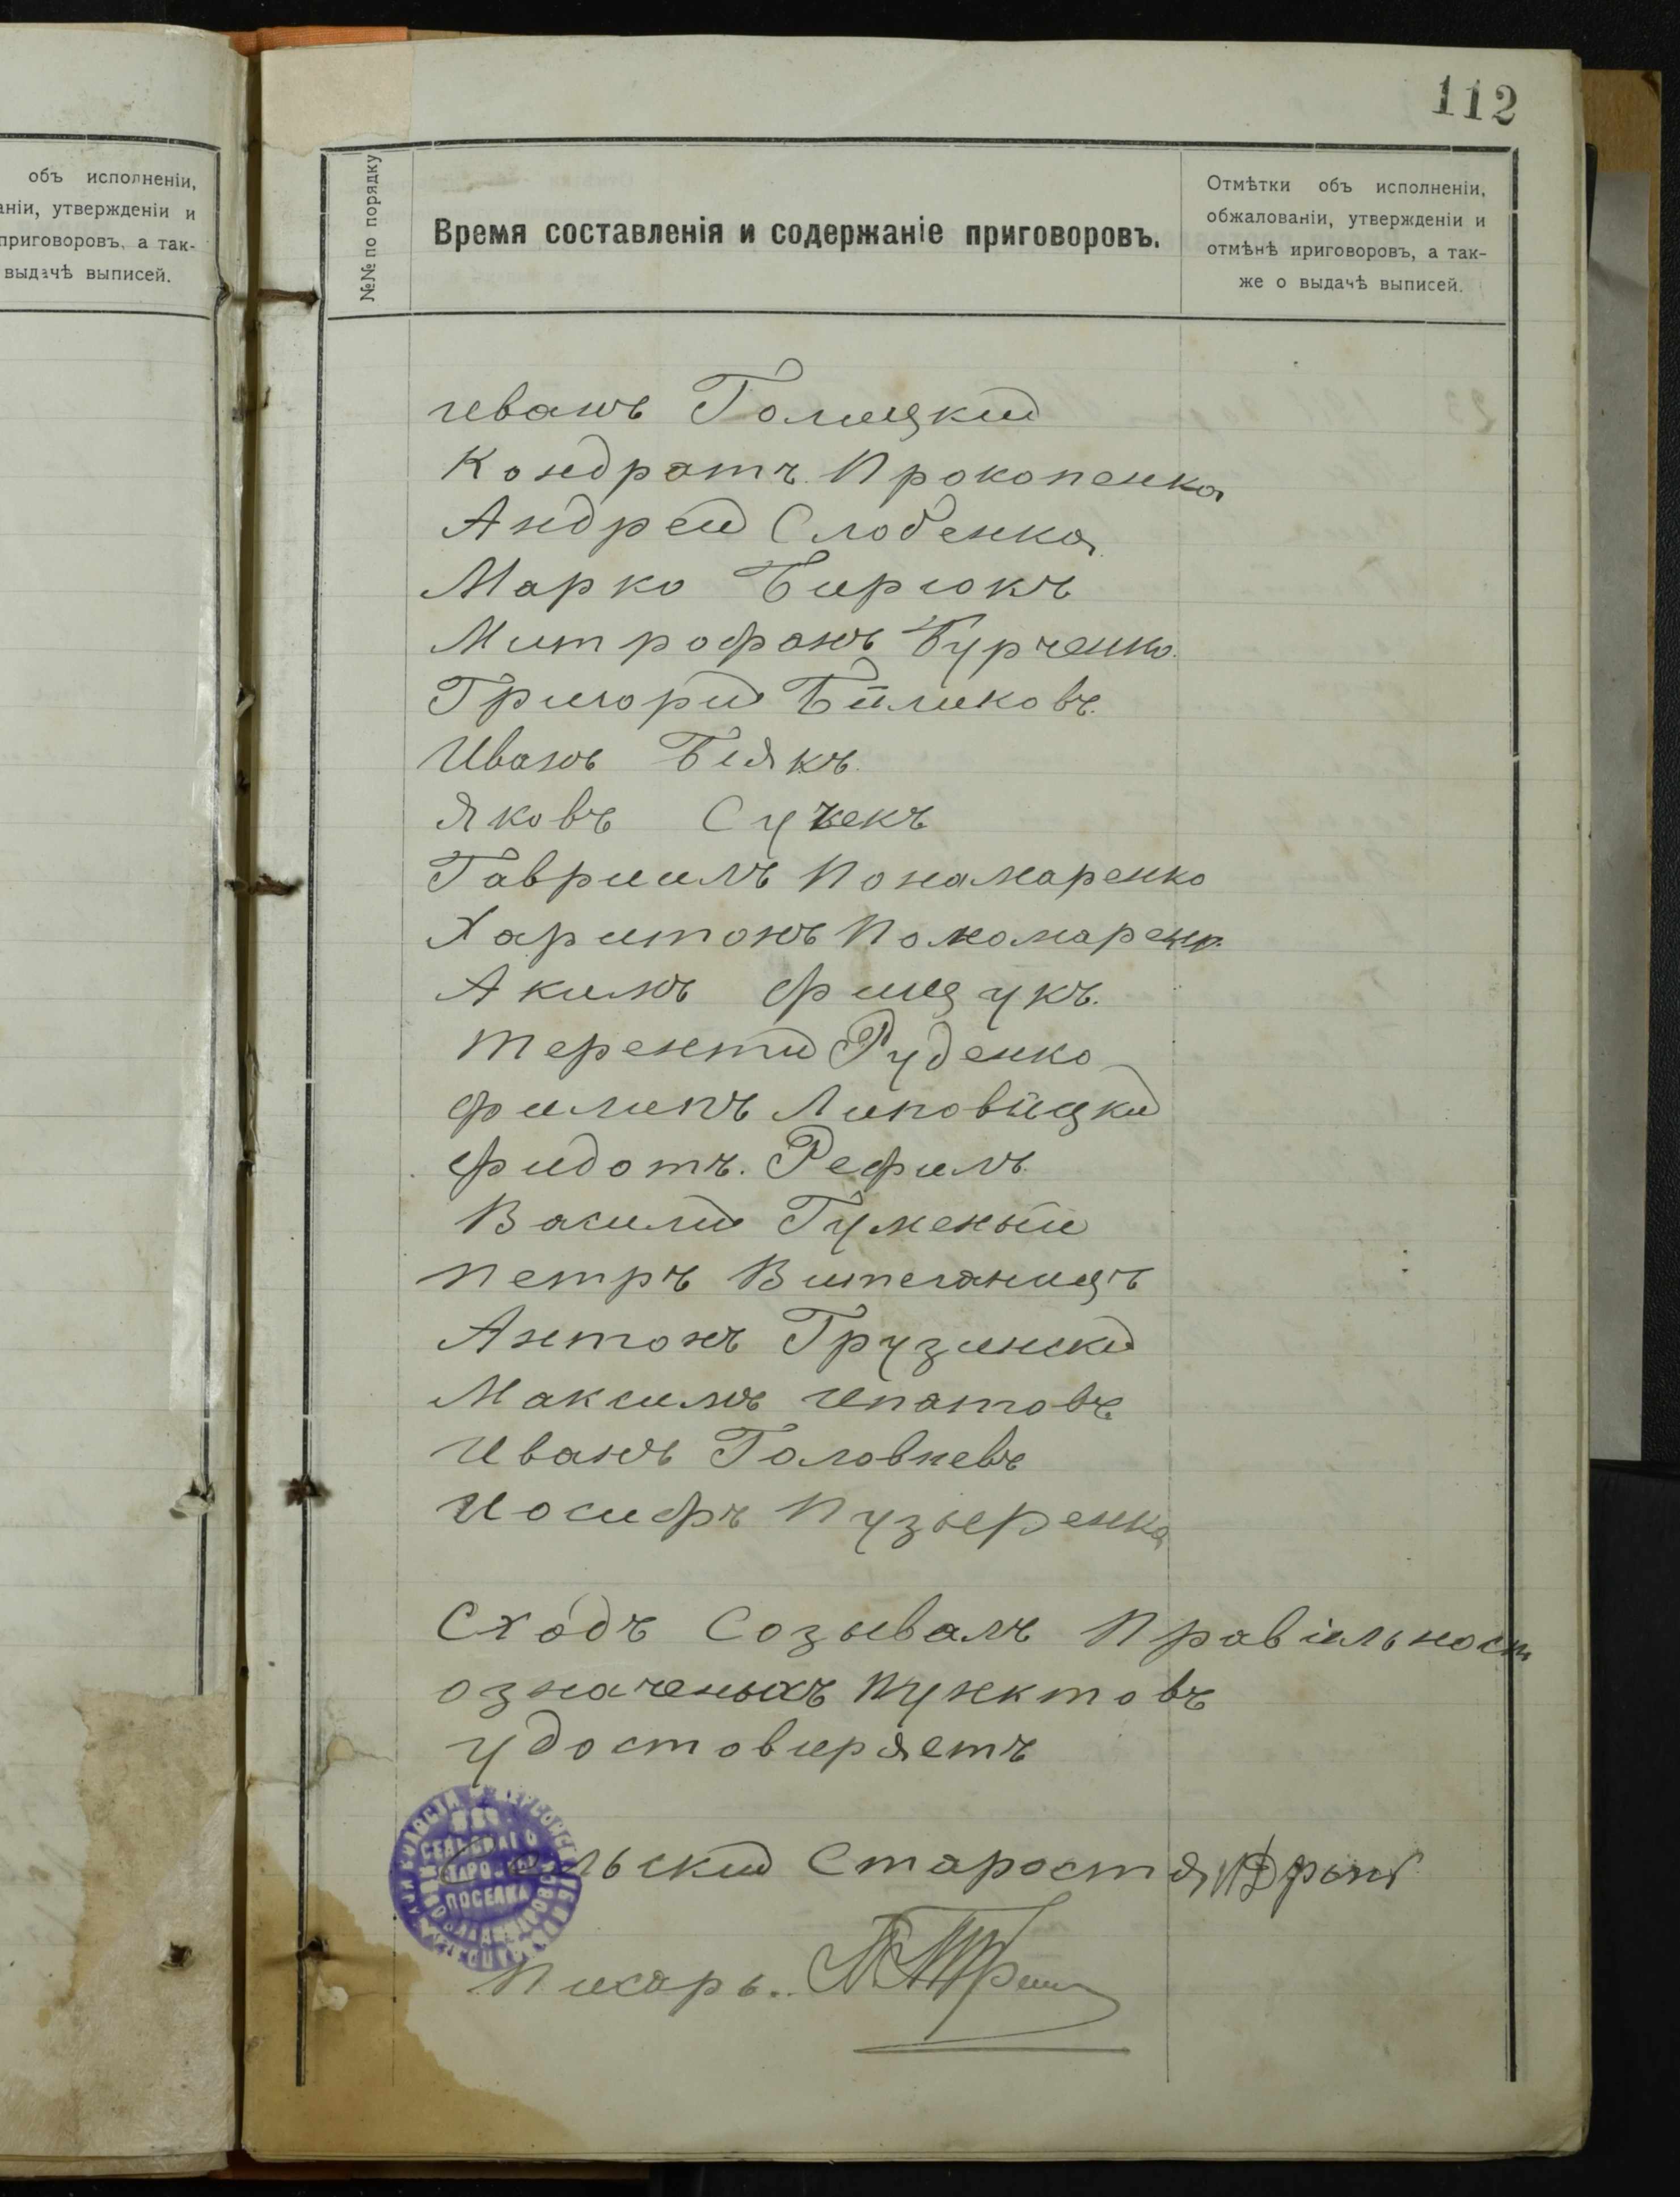 112
объ исполненіи,
аніи, утвержденіи и
приговоровъ, а так-
выдачѣ выписей.
№№ по порядку
Время составленія и содержаніе приговоровъ.
Отмѣтки объ исполненіи,
обжалованіи, утвержденіи и
отмѣнѣ ириговоровъ, а так-
же о выдачѣ выписей.
иванъ Голицкий
Кондратъ Прокопенко
Андрей Слобенко
Марко Бирюкъ
Митрофанъ Бурченко
Григорий Биликовъ
Иванъ Биякъ
Яковъ Сучекъ
Гавриилъ Понамаренко
Харитонъ Пономаренко
Акимъ Фищукъ.
Терентий Руденко
Филипъ Липовицкий
Фидотъ. Рефилъ
Василий Гуменый
Петръ
Антонъ Грузинский
Максимъ ипатовъ
Иванъ Головневъ
Иосифъ Пузыренко
Сходъ Созывалъ Правильност
означеныхъ пунктовъ
удостовиряетъ
Сельский Староста
СЕЛЬСКАГО
ПОСЕЛКА
Писарь.